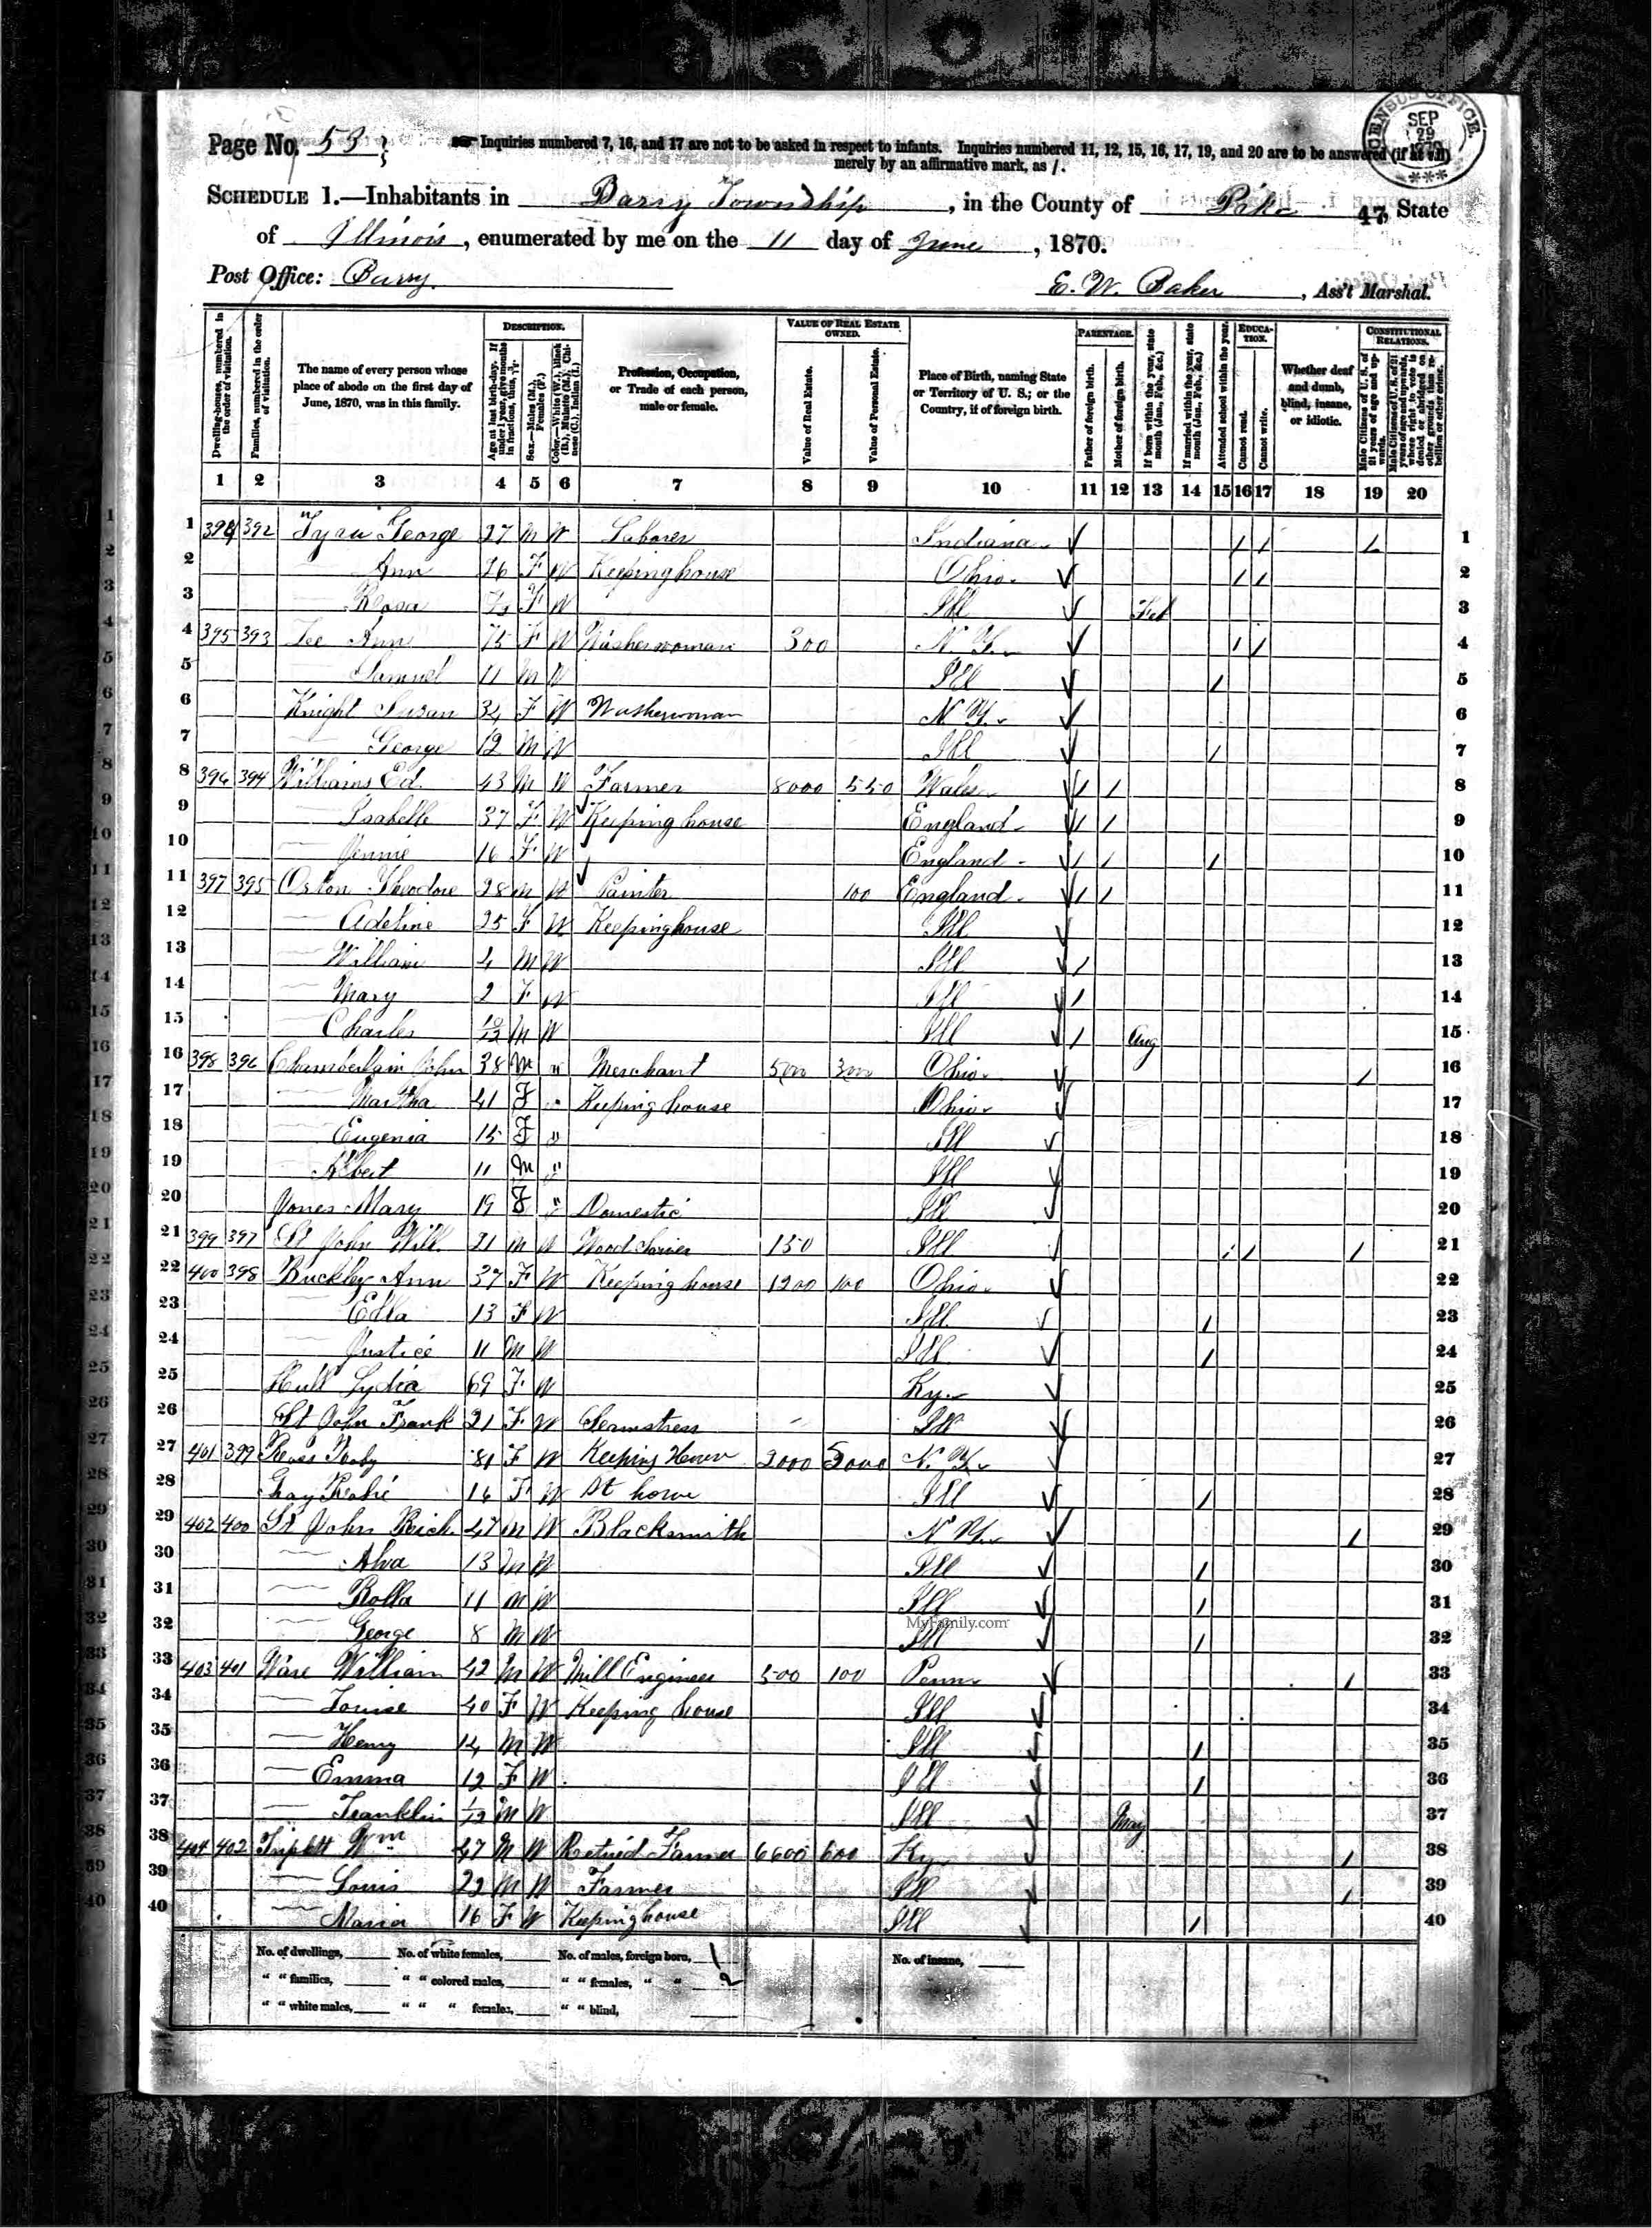 Page No. 53
Inquiries numbered 7, 16, and 17 are not to be asked in respect to infants. Inquiries numbered 11, 12, 15, 16, 17, 19, and 20 are to be answered (if at all)
merely by an affirmative mark, as /.
CENSUS OFFICE SEP 29 1870
SCHEDULE 1.—Inhabitants in Barry Township, in the County of Pike 47, State
of Illinois, enumerated by me on the 11 day of June, 1870.
Post Office: Barry.
E. W. Baker, Ass't Marshal.
Dwelling-houses, numbered in the order of visitation.
Families, numbered in the order of visitation.
The name of every person whose place of abode on the first day of June, 1870, was in this family.
DESCRIPTION.
Age at last birth-day. If under 1 year, give months in fractions, thus, 3/12.
Sex.—Males (M.), Females (F.)
Color.—White (W.), Black (B.), Mulatto (M.), Chinese (C.), Indian (I.)
Profession, Occupation, or Trade of each person, male or female.
VALUE OF REAL ESTATE OWNED.
Value of Real Estate.
Value of Personal Estate.
Place of Birth, naming State or Territory of U. S.; or the Country, if of foreign birth.
PARENTAGE.
Father of foreign birth.
Mother of foreign birth.
If born within the year, state month (Jan., Feb., &c.)
If married within the year, state month (Jan., Feb., &c.)
Attended school within the year.
EDUCATION.
Cannot read.
Cannot write.
Whether deaf and dumb, blind, insane, or idiotic.
CONSTITUTIONAL RELATIONS.
Male Citizens of U. S. of 21 years of age and upwards.
Male Citizens of U. S. of 21 years of age and upwards, whose right to vote is denied or abridged on other grounds than rebellion or other crime.
1 2 3 4 5 6 7 8 9 10 11 12 13 14 15 16 17 18 19 20
1 394 392 George 27 M W Laborer Indiana / / / 1
2 Ann 26 F W Keeping house Ohio / / 2
3 Rosa F W Ill Feb 3
4 395 393 Lee Ann 75 F W Washerwoman 300 N. Y. / / 4
5 Samuel 11 M W Ill / 5
6 Knight Susan 34 F W Washerwoman N. Y. 6
7 George 12 M W Ill / 7
8 396 394 Williams Ed. 43 M W Farmer 8000 550 Wales / / 8
9 Isabelle 37 F W Keeping house England / / 9
10 Jennie 16 F W England / / / 10
11 397 395 Orton Theodore 28 M W Painter 100 England / / 11
12 Adeline 25 F W Keeping house Ill 12
13 William 4 M W Ill / 13
14 Mary 2 F W Ill / 14
15 Charles 10/12 M W Ill / Aug 15
16 398 396 Chamberlain John 38 M " Merchant 500 300 Ohio / 16
17 Martha 41 F " Keeping house Ohio 17
18 Eugenia 15 F " Ill 18
19 Albert 11 M " Ill 19
20 Jones Mary 19 F " Domestic Ill 20
21 399 397 St John Will. 21 M W Wood Sawer 150 Ill / / / 21
22 400 398 Buckley Ann 37 F W Keeping house 1200 100 Ohio 22
23 Edla 13 F W Ill / 23
24 Justice 11 M W Ill / 24
25 Hull Lydia 69 F W Ky. 25
26 St John Frank 21 F W Seamstress Ill 26
27 401 399 81 F W Keeping House 2000 5000 N. Y. 27
28 Gray 16 F W At home Ill / 28
29 402 400 St John Rich. 47 M W Blacksmith N. Y. / 29
30 Alva 13 M W Ill / 30
31 Rolla 11 M W Ill / 31
32 George 8 M W Ill / 32
MyFamily.com
33 403 401 Ware William 42 M W Mill Engineer 500 100 Penn / 33
34 Louise 40 F W Keeping house Ill 34
35 Henry 14 M W Ill / 35
36 Emma 12 F W Ill / 36
37 Franklin 1/12 M W Ill May 37
38 404 402 Triplett Wm 47 M W Retired Farmer 6600 600 Ky / 38
39 Louis 22 M W Farmer Ill / 39
40 Maria 16 F W Keeping house Ill / 40
No. of dwellings, No. of white females, No. of males, foreign born, 1 No. of insane,
" " families, " " colored males, " " females, " " 2
" " white males, " " " females, " " blind,